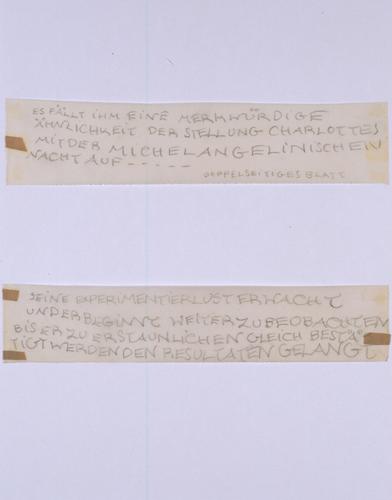 ES FÄLLT IHM EINE MERKWÜRDIGE
ÄHNLICHKEIT DER STELLUNG CHARLOTTES
MIT DER MICHELANGELINISCHEN
NACHT AUF - - - - -
DOPPELSEITIGES BLATT
SEINE EXPERIMENTIERLUST ERWACHT
UND ER BEGINNT WEITER ZU BEOBACHTEN
BIS ER ZU ERSTAUNLICHEN GLEICH BESTÄ
TIGT WERDENDEN RESULTATEN GELANGT